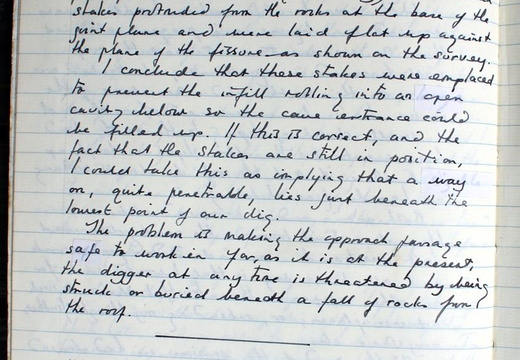 stakes protruded from the rocks at the base of the
joint plane and were laid flat up against
the plane of the fissure as shown on the survey.
I conclude that these stakes were emplaced
to prevent the infill rolling into an open
cavity below so the cave entrance could
be filled up. If this is correct, and the
fact that the stakes are still in position,
I could take this as implying that a way
on, quite penetrable, lies just beneath the
lowest point of our dig.
The problem is making the approach passage
safe to work in for, as it is at the present,
the digger at any time is threatened by being
struck or buried beneath a fall of rocks from
the roof.